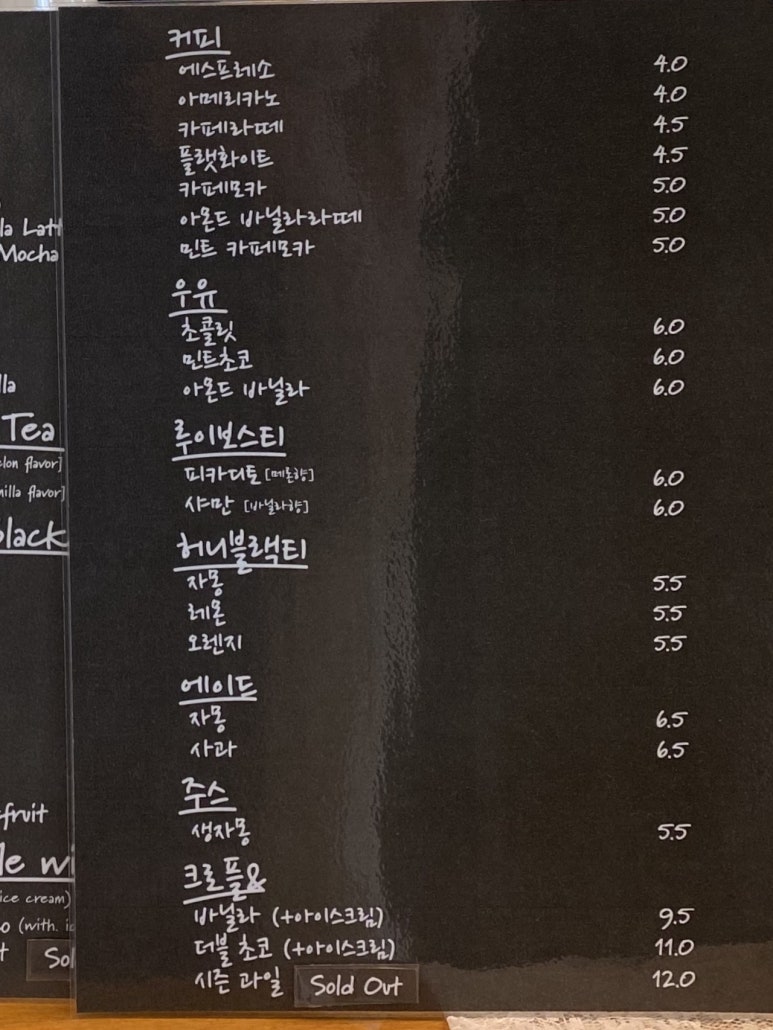 커피
에스프레소 4.0
아메리카노 4.0
카페라떼 4.5
플랫화이트 4.5
카페모카 5.0
아몬드 바닐라라떼 5.0
민트 카페모카 5.0
우유
초콜릿 6.0
민트초코 6.0
아몬드 바닐라 6.0
루이보스티
피카디토 [메론향] 6.0
샤만 [바닐라향] 6.0
허니블랙티
자몽 5.5
레몬 5.5
오렌지 5.5
에이드
자몽 6.5
사과 6.5
주스
생자몽 5.5
크로플&
바닐라 (+아이스크림) 9.5
더블 초코 (+아이스크림) 11.0
시즌 과일 Sold Out 12.0
Mocha
Tea
flavor]
flavor]
ice cream)
(with.